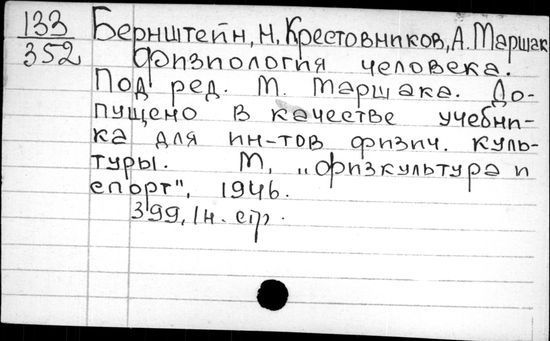 133
352
Бернштейн, Н. Крестовников, А. Маршак
Физиология человека.
Под ред. М. Маршака. До-
пущено в качестве учебни-
ка для ин-тов физич. куль-
туры. М, „Физкультура и
спорт", 1946.
399, 1н. стр.